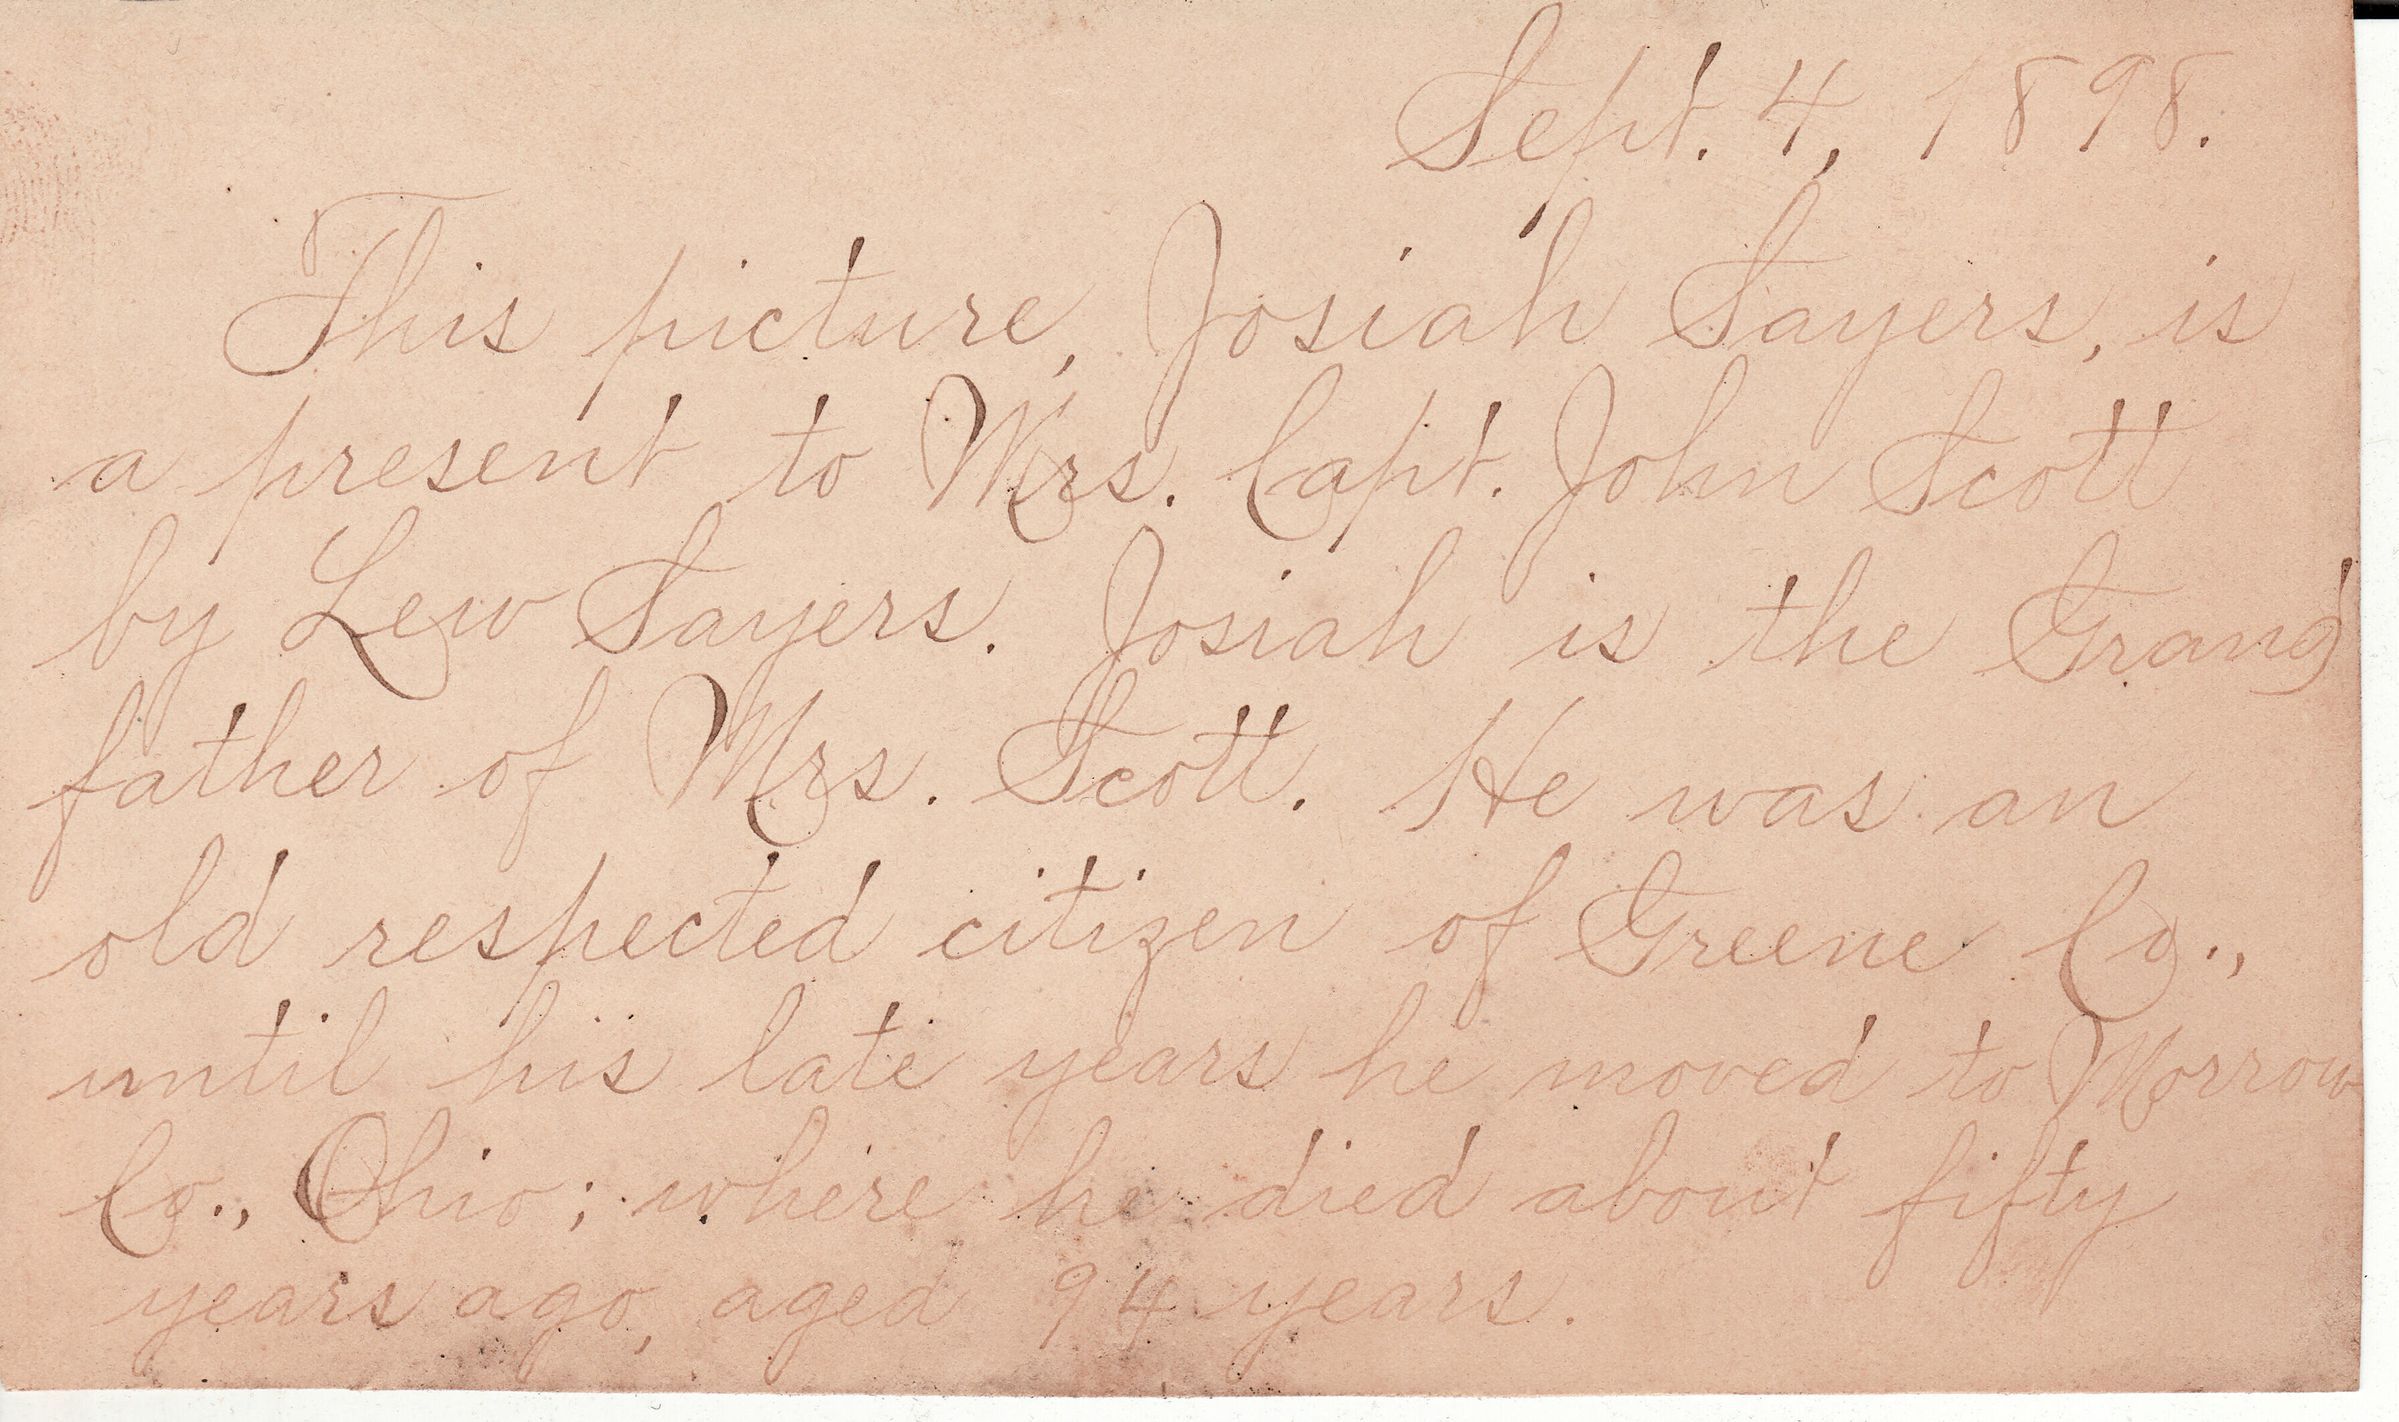 Sept. 4, 1898.
This picture, Josiah Sayers, is
a present to Mrs. Capt. John Scott
by Lew Sayers. Josiah is the Grand
father of Mrs. Scott. He was an
old respected citizen of Greene Co.,
until his late years he moved to Morrow
Co., Ohio; where he died about fifty
years ago, aged 94 years.